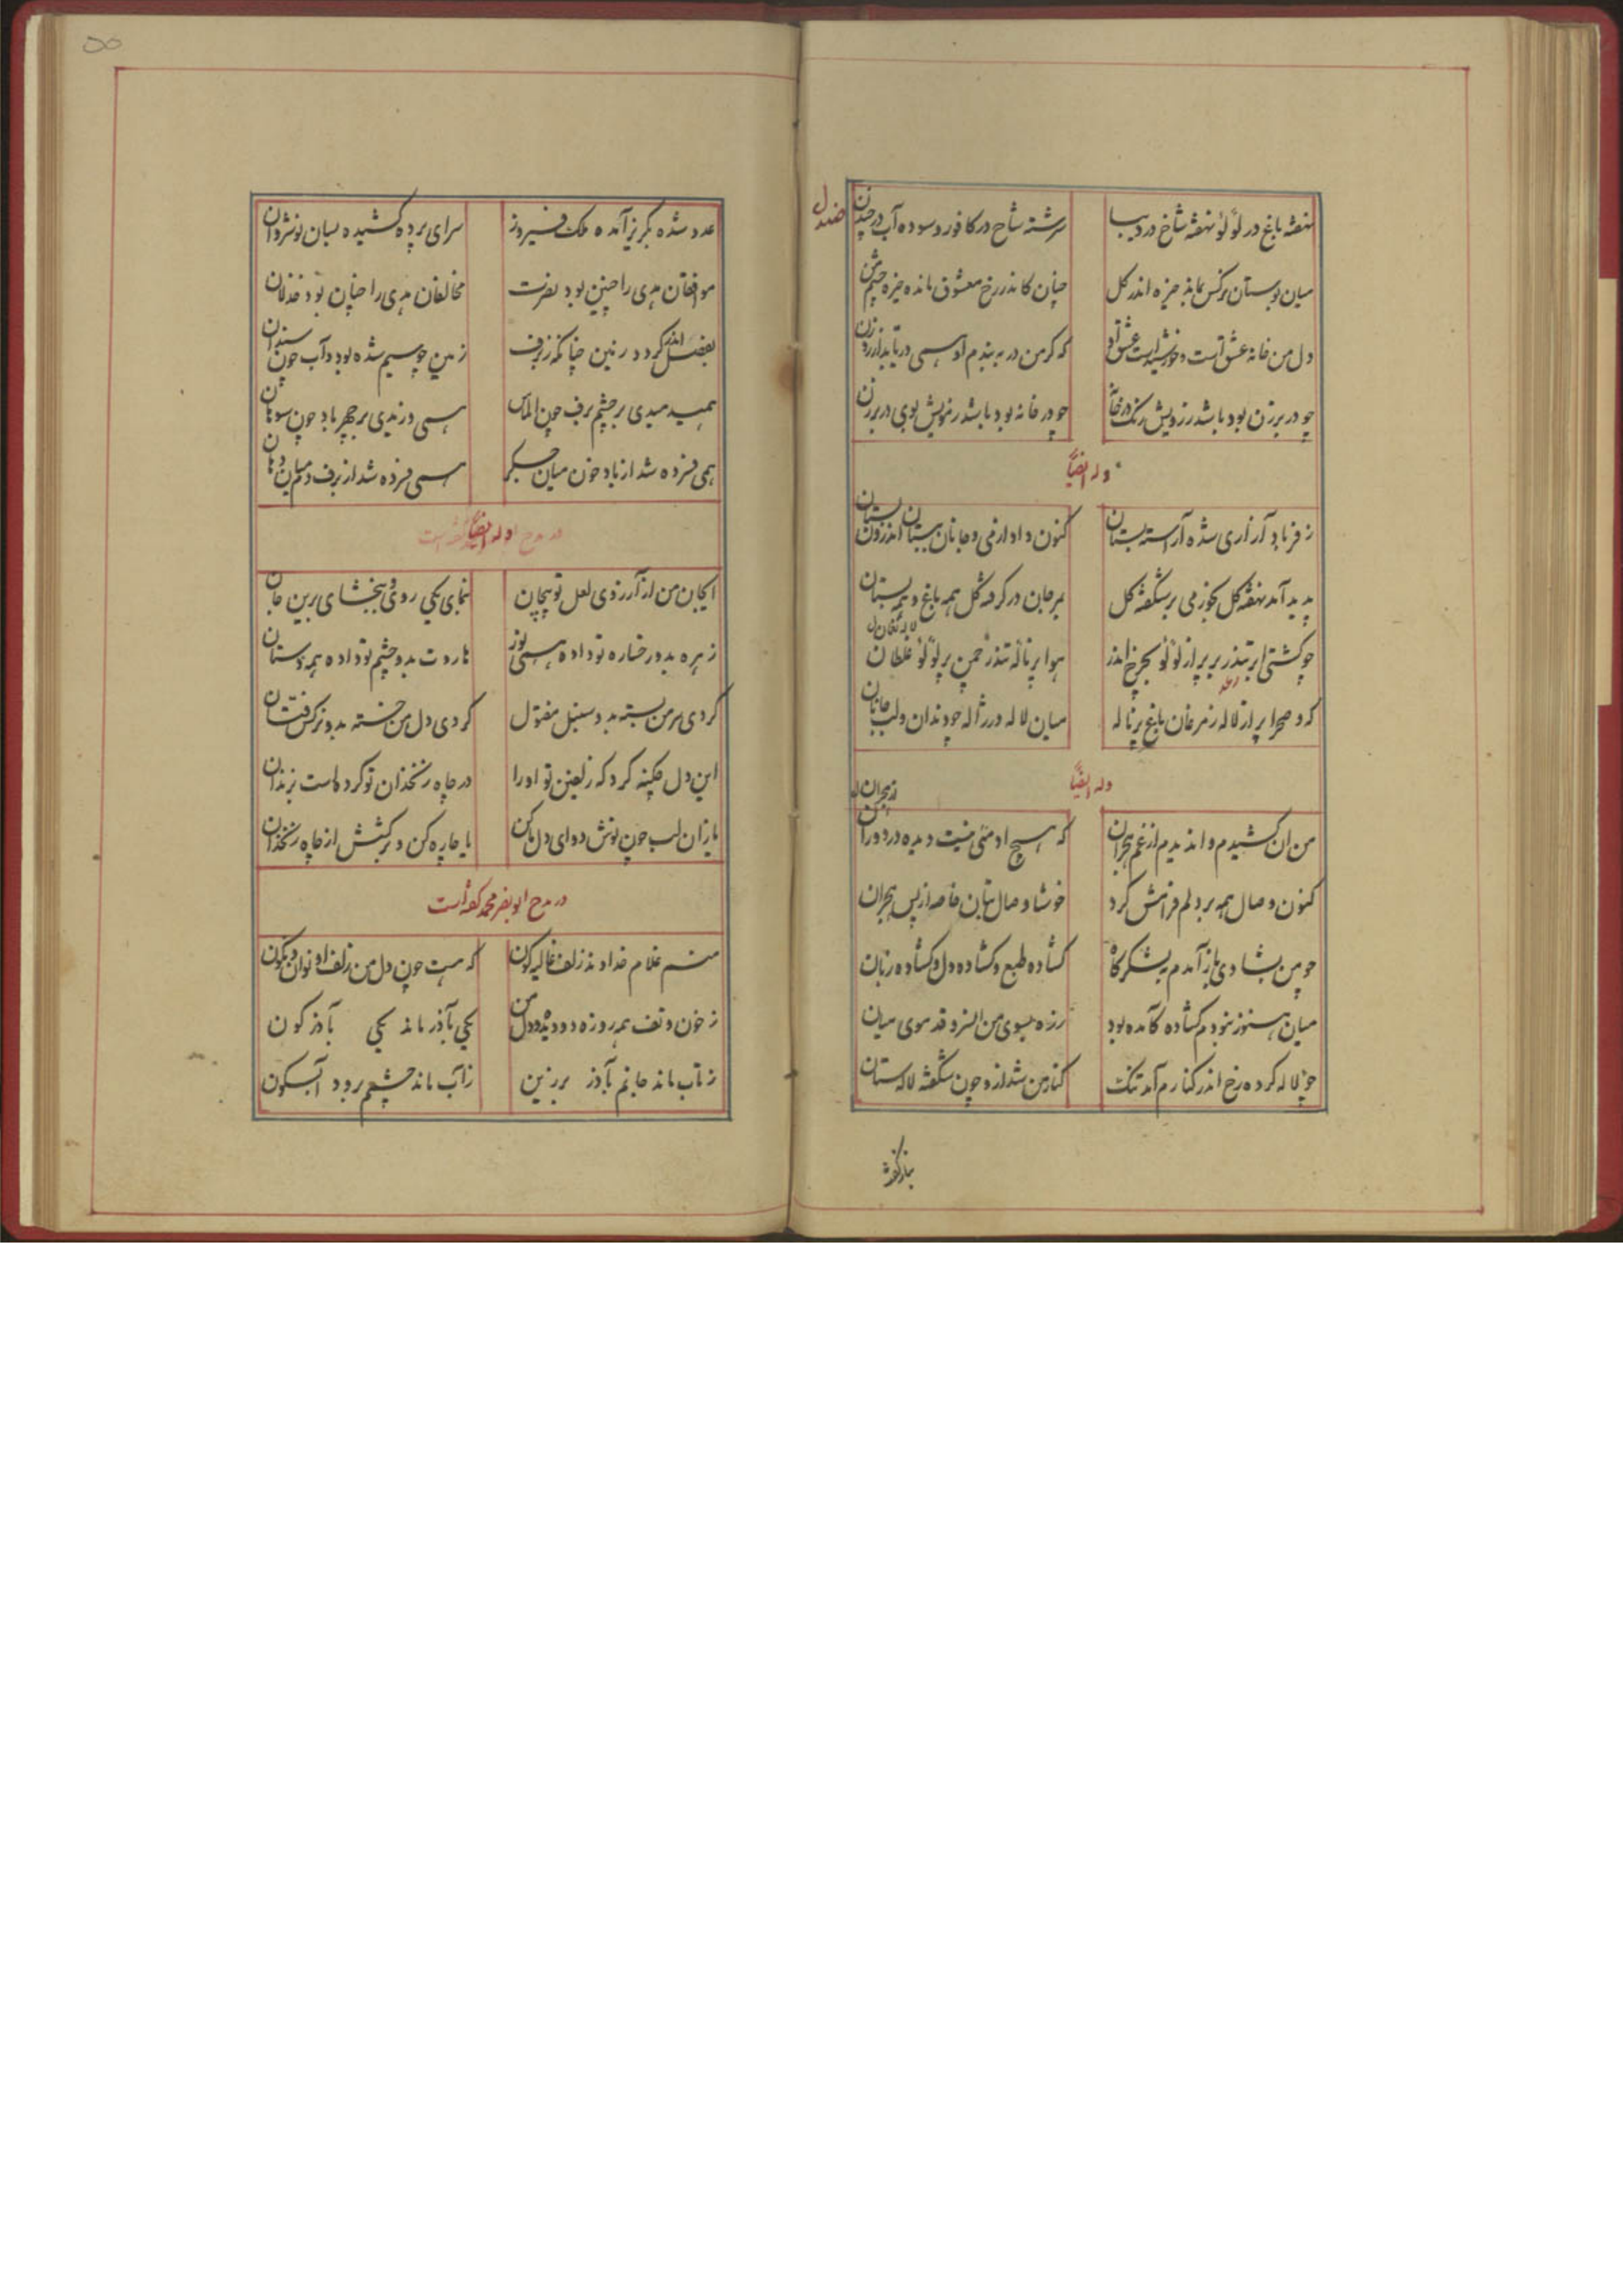 نهفته باغ در لؤلؤ نهفته شاخ در دیبا
سرشته شاخ در کافور و سوده آب در چندن
صندل
میان بوستان نرکس بماند خیره اندر کل
چنان کاندر رخ معشوق مانده خیره چشم من
دل من خانهٔ عشق است و خورشید است عشق او
که کر من در ببندم او همی در تابد از روزن
چو در برزن بود باشد ز رویش رنک در خانه
چو در خانه بود باشد ز مویش بوی در برزن
وله ایضاً
ز فر باد آزاری شده آراسته بستان
کنون داد از می و جانان ببستان اندرون بستان
پدید آمد نهفته کل بخور می بر شکفته کل
بمرجان در کرفته کل همه باغ و همه بستان
چو کشتی ابر تندر بر پر از لؤلؤ بچرخ اندر
هوا پر نالهٔ تندر چمن پر لؤلؤ غلطان
که و صحرا پر از لاله ز مرغان باغ پر ناله
میان لاله در ژاله چو دندان و لب جانان
وله ایضاً
من آن کشیدم و آن دیدم از غم هجران
که هیچ آدمئی نیست دیده در دوران
کنون وصال همه بر دلم فرامش کرد
خوشا وصال بتان خاصه از پس هجران
چو من بشادی باز آمدم بلشکرکاه
کشاده طبع و کشاده دل و کشاده زبان
میان هنوز نبودم کشاده کآمده بود
ز ره بسوی من آن سرو قد موی میان
چو لاله کرده رخ اندر کنارم آمد تنک
کنار من شد ازو چون شکفته لالستان
عدو شده بکریز آمده ملک فیروز
سرای پرده کشیده بسان نوشروان
موافقان هدی را چنین بود نصرت
مخالفان هدی را چنان بود خذلان
بفضل اندر کردد زمین چنانکه ز برف
زمین چو سیم شده بود و آب چون سندان
همی دمیدی بر چشم برف چون الماس
همی وزیدی بر چهر باد چون سوهان
همی فسرده شد از باد خون میان جکر
همی فسرده شد از برف دم میان دهان
وله ایضاً
ای جان من از آرزوی لعل تو پیچان
بنمای یکی روی و ببخشای برین جان
زهره بدو رخساره تو داده همی نور
هاروت بدو چشم تو داده همه دستان
کردی سر من بسته بدو سنبل مفتول
کردی دل من خسته بدو نرکس فتان
این دل چکنه کرد که زلفین تو او را
در چاه زنخدان تو کرده است بزندان
یا زان لب چون نوش دوای دل ما کن
یا چاره کن و برکشش از چاه زنخدان
در مدح ابونصر محمد کفته است
منم غلام خداوند زلف غالیه کون
که هست چون دل من زلف او نوان و نکون
ز خون و تف همه روزه دو دیده و دل من
یکی بآذر ماند یکی بآذرکون
ز تاب ماند جانم بآذر برزین
ز آب ماند چشمم برود آبسکون